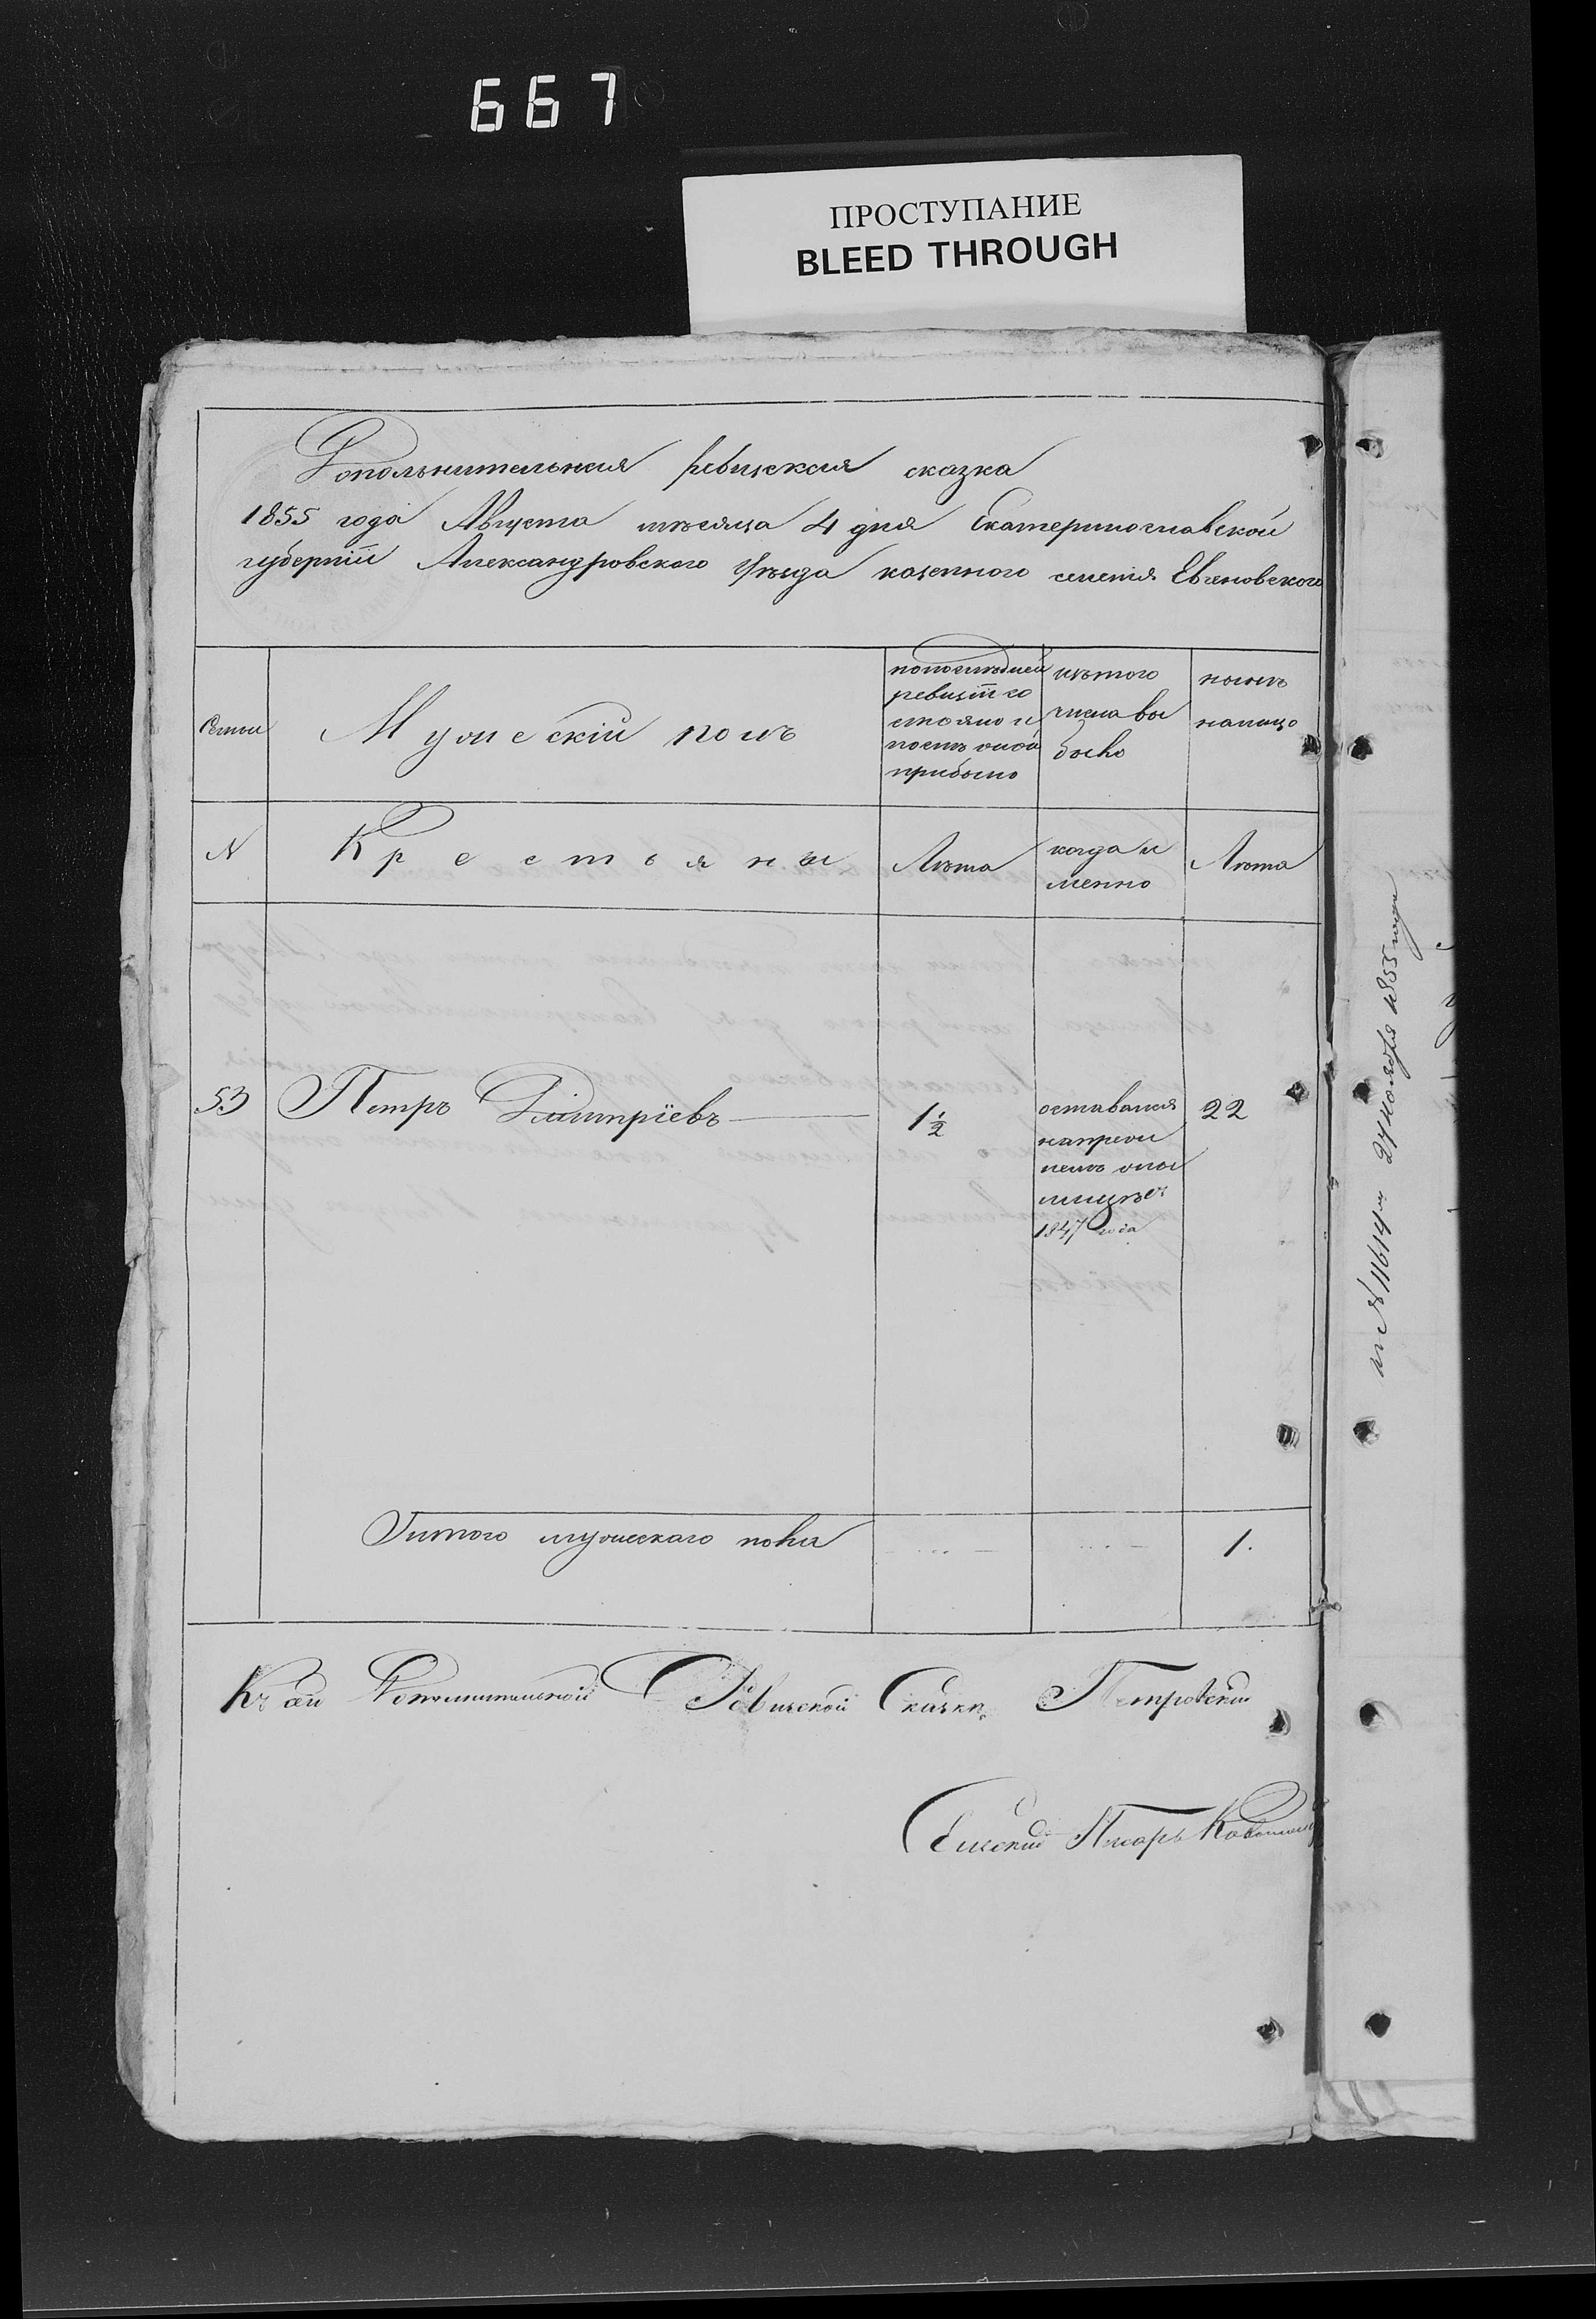 667
ПРОСТУПАНИЕ
BLEED THROUGH
Дополнительная ревизская сказка
1855 года Августа мѣсяца 4 дня Екатеринославской
губерніи Александровскаго уѣзда казеннаго селенія
Семьи
Мужескій полъ
попослѣдней
ревизіи со
стояло и
послѣ оной
прибыло
изътого
числа вы
было
нынѣ
налицо
N
Крестьяны
Лѣта
когда и
менно
Лѣта
53
Петръ Дмитріевъ
1 1/2
оставался
1847 года
22
Итого мужескаго пола
1.
Къ сей Дополнительной Ревизской Сказки
Сельский Писарь
27 Ноября 1855 года